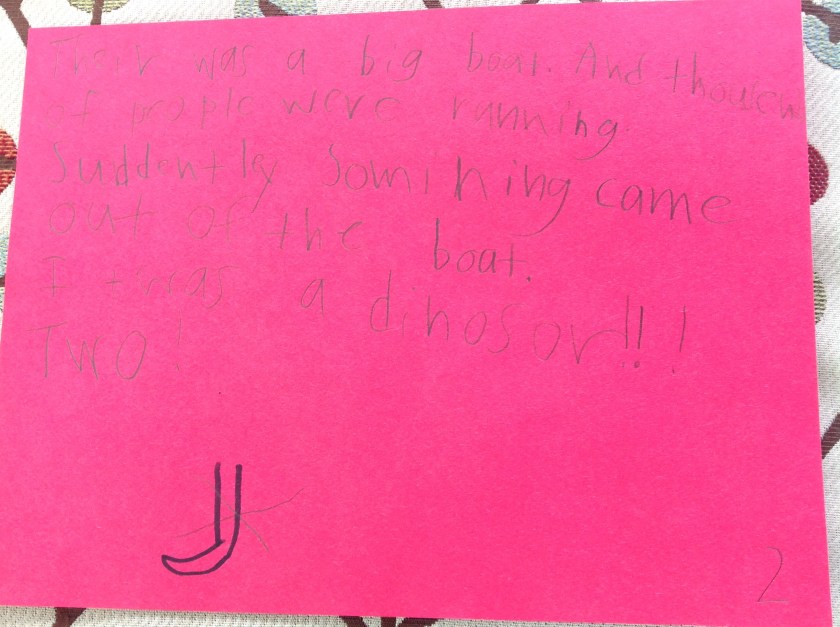 Their was a big boat. And thousen
of people were running.
Suddently Somthing came
out of the boat.
It was a dinosor!!!
Two!
2